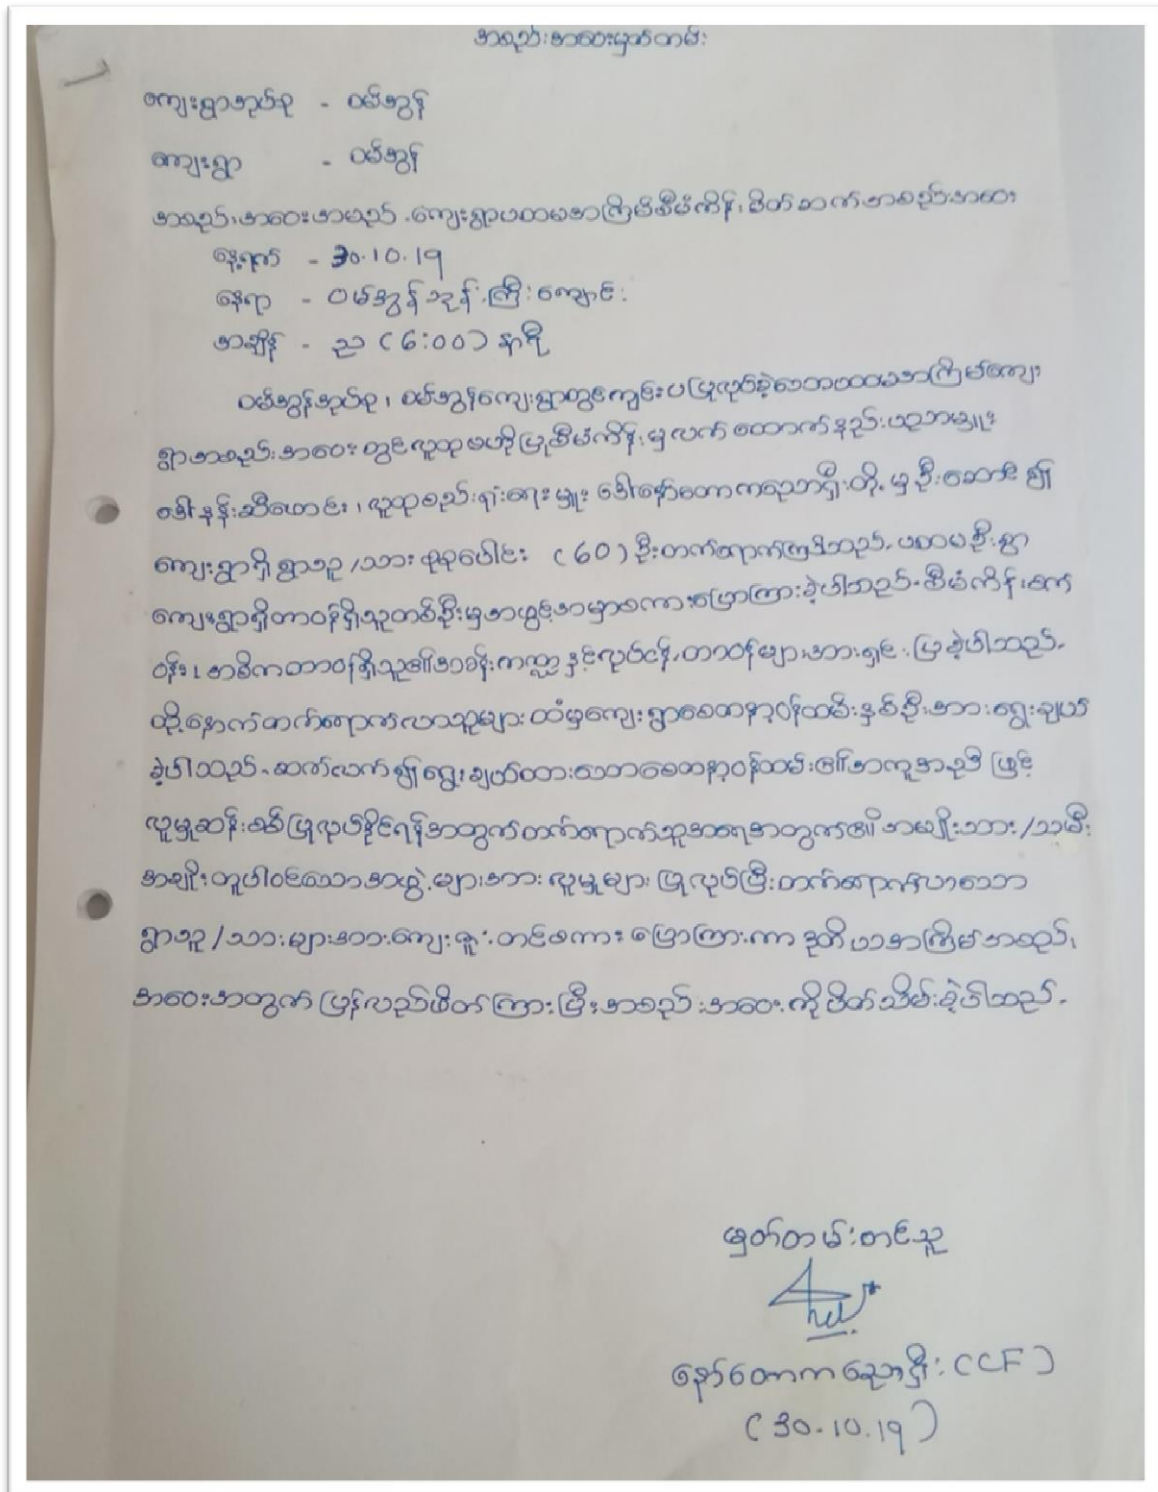 အစည်းအဝေးမှတ်တမ်း
ကျေးရွာအုပ်စု - ဝမ်အွန်
ကျေးရွာ - ဝမ်အွန်
အစည်းအဝေးအမည် - ကျေးရွာပထမအကြိမ်စီမံကိန်းမိတ်ဆက်အစည်းအဝေး
နေ့ရက် - 30.10.19
နေရာ - ဝမ်အွန်ဘုန်းကြီးကျောင်း
အချိန် - ည (6:00) နာရီ
ဝမ်အွန်အုပ်စု၊ ဝမ်အွန်ကျေးရွာတွင်ကျင်းပပြုလုပ်ခဲ့သောပထမအကြိမ်ကျေး
ရွာအစည်းအဝေးတွင်လူထုဗဟိုပြုစီမံကိန်းမှလက်ထောက်နည်းပညာမှူး
ဒေါ်နန်းဆီဟောင်း၊ လူထုစည်းရုံးရေးမှူး ဒေါ်နော်တောကညောရှီးတို့မှဦးဆောင်၍
ကျေးရွာရှိရွာသူ/သား စုစုပေါင်း (60) ဦးတက်ရောက်ကြပါသည်. ပထမဦးစွာ
ကျေးရွာရှိတာဝန်ရှိသူတစ်ဦးမှအဖွင့်အမှာစကားပြောကြားခဲ့ပါသည်. စီမံကိန်းစက်
ဝန်း၊ အဓိကတာဝန်ရှိသူ၏အခန်းကဏ္ဍနှင့်လုပ်ငန်းတာဝန်များအားရှင်းပြခဲ့ပါသည်.
ထို့နောက်တက်ရောက်လာသူများထံမှကျေးရွာစေတနာ့ဝန်ထမ်းနှစ်ဦးအားရွေးချယ်
ခဲ့ပါသည်. ဆက်လက်၍ရွေးချယ်ထားသောစေတနာ့ဝန်ထမ်း၏အကူအညီဖြင့်
လူမှုဆန်းစစ်ပြုလုပ်နိုင်ရန်အတွက်တက်ရောက်သူအရေအတွက်၏အမျိုးသား/သမီး
အချိုးတူပါဝင်သောအဖွဲ့များအားလူမှုများပြုလုပ်ပြီးတက်ရောက်လာသော
ရွာသူ/သားများအားကျေးဇူးတင်စကားပြောကြားကာဒုတိယအကြိမ်အစည်း
အဝေးအတွက်ပြန်လည်ဖိတ်ကြားပြီးအစည်းအဝေးကိုပိတ်သိမ်းခဲ့ပါသည်.
မှတ်တမ်းတင်သူ
နော်တောကညောရှီး (CF)
(30.10.19)